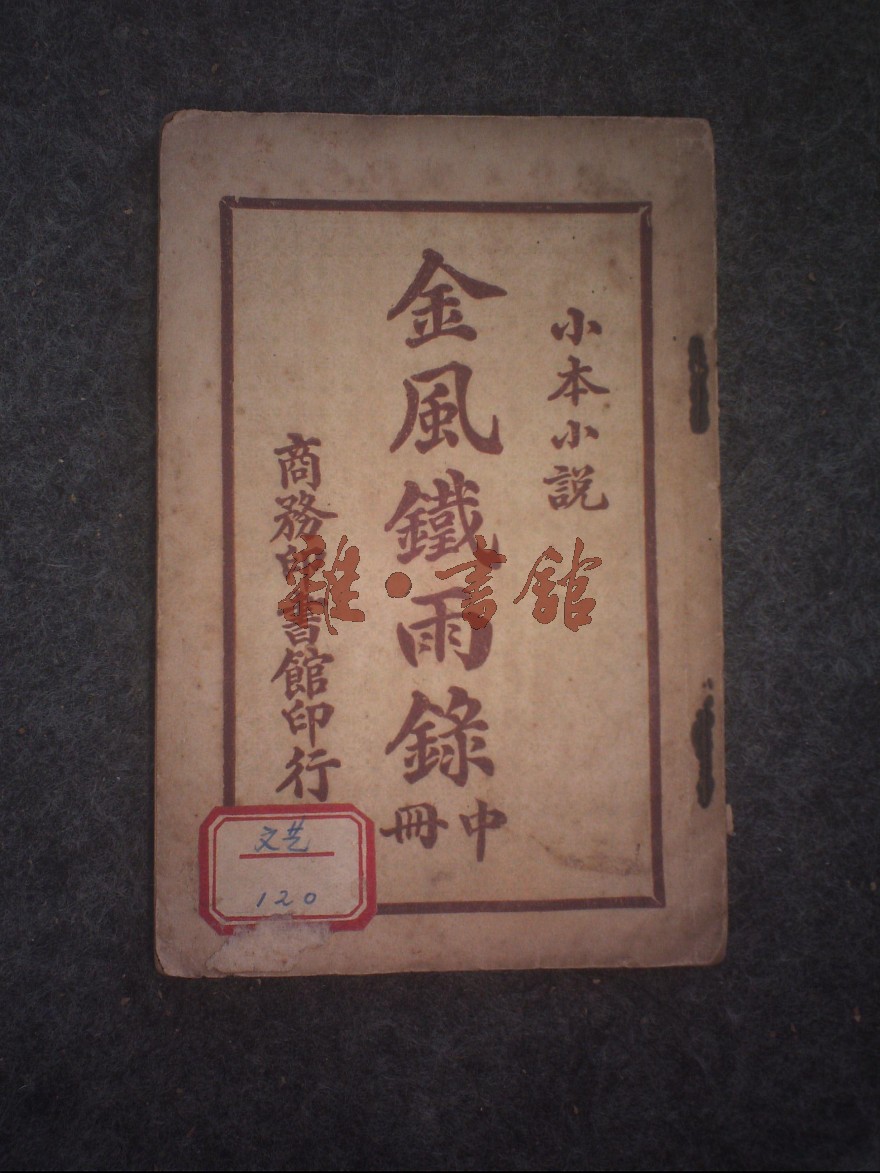 小本小説
金風鐵雨錄
中冊
商務印書館印行
雜·書館
文艺
120